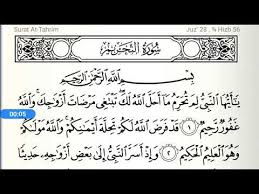 Surat At-Tahrim
Juz' 28 , ¾ Hizb 56
سُورَةُ التَّحْرِيمِ
بِسْمِ اللَّهِ الرَّحْمَٰنِ الرَّحِيمِ
يَٰٓأَيُّهَا ٱلنَّبِىُّ لِمَ تُحَرِّمُ مَآ أَحَلَّ ٱللَّهُ لَكَ تَبْتَغِى مَرْضَاتَ أَزْوَٰجِكَ وَٱللَّهُ
00:05
غَفُورٌ رَّحِيمٌ ١ قَدْ فَرَضَ ٱللَّهُ لَكُمْ تَحِلَّةَ أَيْمَٰنِكُمْ وَٱللَّهُ مَوْلَىٰكُمْ
وَهُوَ ٱلْعَلِيمُ ٱلْحَكِيمُ ٢ وَإِذْ أَسَرَّ ٱلنَّبِىُّ إِلَىٰ بَعْضِ أَزْوَٰجِهِۦ حَدِيثًا